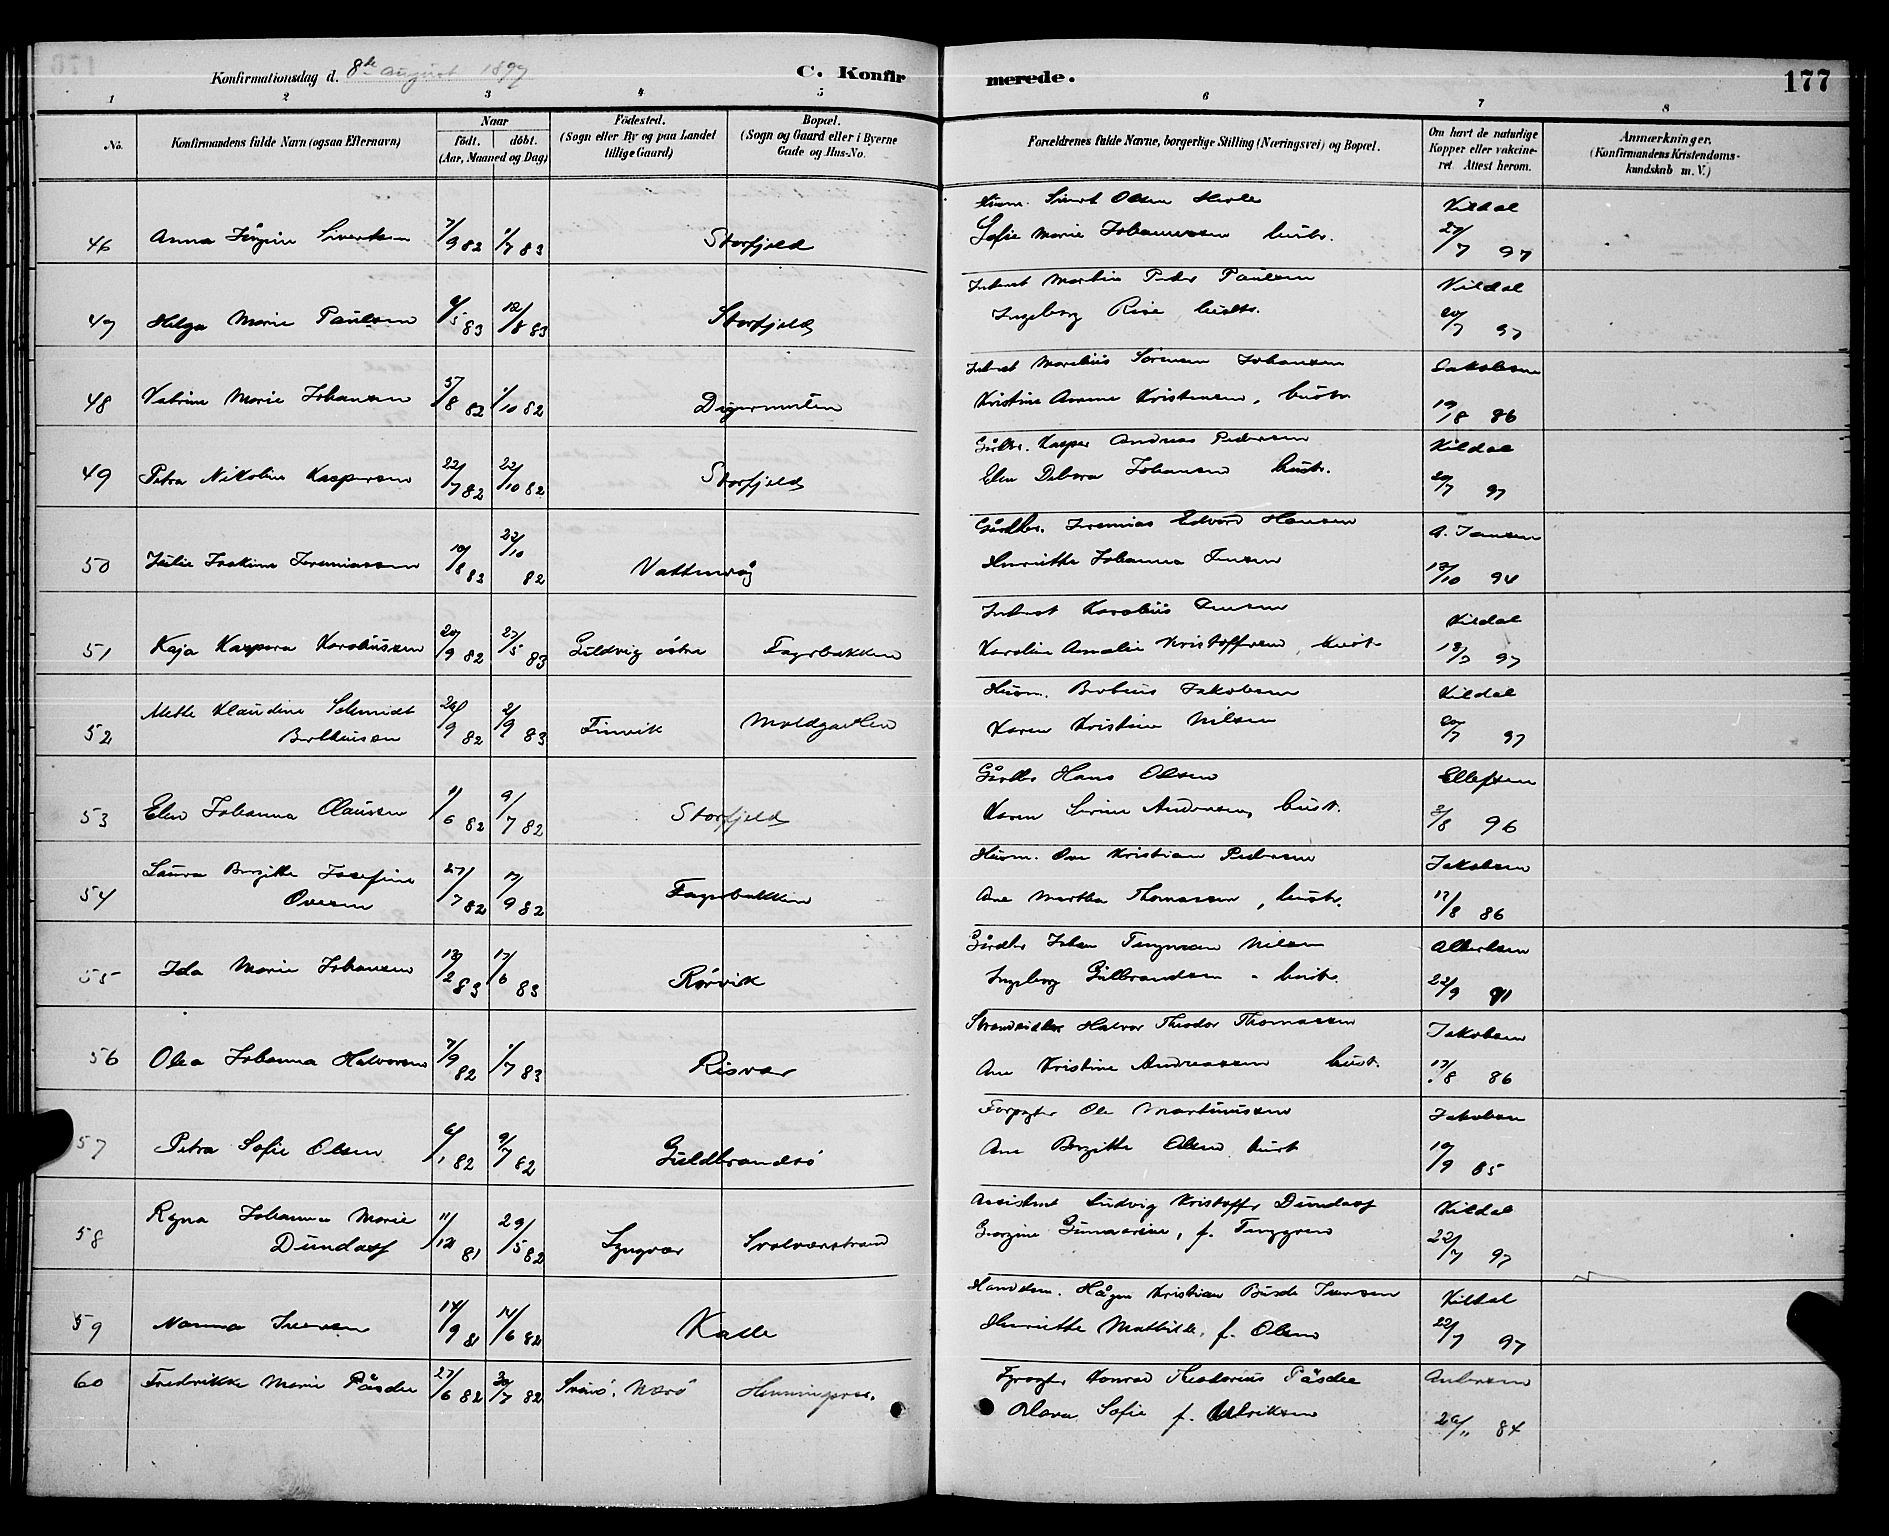 Konfirmationsdag d. 8de august 1897
C. Konfirmerede.
177
1 2 3 4 5 6 7 8
No. Konfirmandens fulde Navn (ogsaa Efternavn) Naar födt. döbt. (Aar, Maaned og Dag) Födested. (Sogn eller By og paa Landet tillige Gaard) Bopæl. (Sogn og Gaard eller i Byerne Gade og Hus-No. Forældrenes fulde Navne, borgerlige Stilling (Næringsvei) og Bopæl. Om havt de naturlige Kopper eller vakcineret. Attest herom. Anmærkninger. (Konfirmandens Kristendomskundskab m. V.)
46 Anna Sivertsen 7/9 82 1/7 83 Storfjeld Husm. Sivert Olsen Kildal
Sofie Marie Johannessen hustr. 27/7 97
47 Helga Marie Paulsen 6/5 83 12/8 83 Storfjeld Inderst Martin Peter Paulsen Kildal
Ingeborg hustr. 20/7 97
48 Marie Johansen 5/8 82 1/10 82 Digermulen Inderst Sörensen Johansen Jakobsen
Kristine Kristensen, hustr. 19/8 86
49 Petra Nikoline Kaspersen 22/7 82 22/10 82 Storfjeld Gårdbr. Kasper Andreas Pedersen Kildal
Elen Debora Johansen hustr. 20/7 97
50 Julie Jeremiassen 10/8 82 22/10 82 Gårdbr. Jeremias Edvard Hansen A. Jansen
Henriette Johanna Jensen 12/10 94
51 Kaja Kaspara Karoliussen 20/9 82 27/5 83 Guldvig östre Fagerbakken Inderst Karolius Jensen Kildal
Karoline Amalie Kristoffersen, hustr. 18/7 97
52 Mette Klaudine Schmidt 9 82 2/9 83 Finvik Moldgavlen Husm. Jakobsen Kildal
Karen Kristine Nilsen 20/7 97
53 Elen Johanna Olaussen 11/6 82 9/7 82 Storfjeld Gårdbr Hans Olsen Ellefsen
Karen Serine Andersen, hustr. 3/8 96
54 Laura Birgitte Josefine 27/7 82 17/9 82 Fagerbakken Husm. Ove Kristian Pedersen Jakobsen
Ovesen Ane Martha Thomassen, hustr. 17/8 86
55 Ida Marie Johansen 18/2 83 17/6 83 Rörvik Gårdbr Johan Nilsen Albertsen
Ingeborg Gulbrandsen hustr. 22/9 91
56 Olea Johanna Halvorsen 7/9 82 1/7 83 Risvær Strandsidder Halvor Theodor Thomassen Jakobsen
Ane Kristine Andreassen hust. 17/8 86
57 Petra Sofie Olsen 6/1 82 9/7 82 Guldbrandsö Forpagter Ole Martinussen Jakobsen
Ane Birgitte Olsen, hust 19/9 85
58 Ragna Johanna Marie 11/12 81 29/5 82 Lyngvær Svolværstrand Assistent Ludvig Kristoffer Dundass Kildal
Dundass Georgine f. 22/7 97
59 Nanna Iversen 14/9 81 14/6 82 Kalle Handelsm. Hågen Kristian Iversen Kildal
Henriette Mathilde, f. Olsen 22/7 97
60 Fredrikke Marie Påske 27/6 82 30/7 82 Nærö Henningsvær. Konrad Theodorius Påske Andersen
Sofie f. Ulriksen 20/11 84